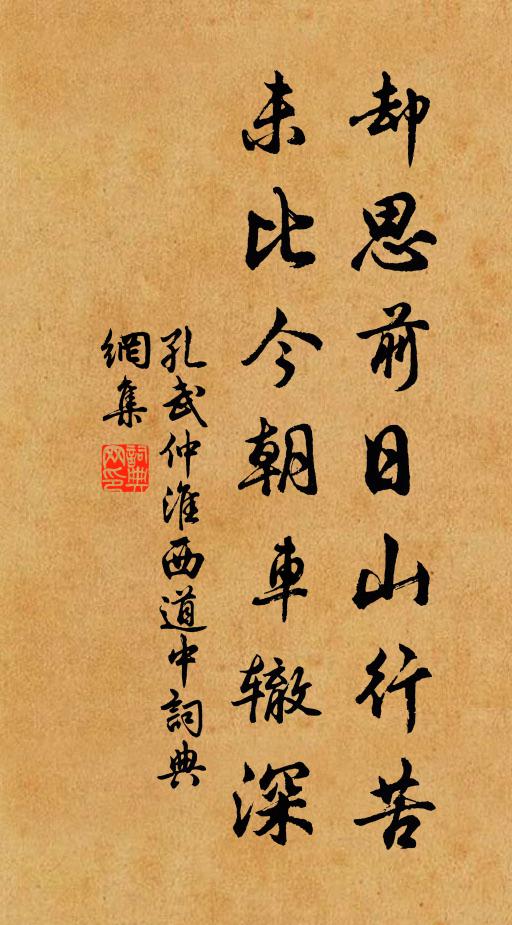 却思前日山行苦
未比今朝車辙深
孔武仲淮西道中詞典
網集
詞典
网印